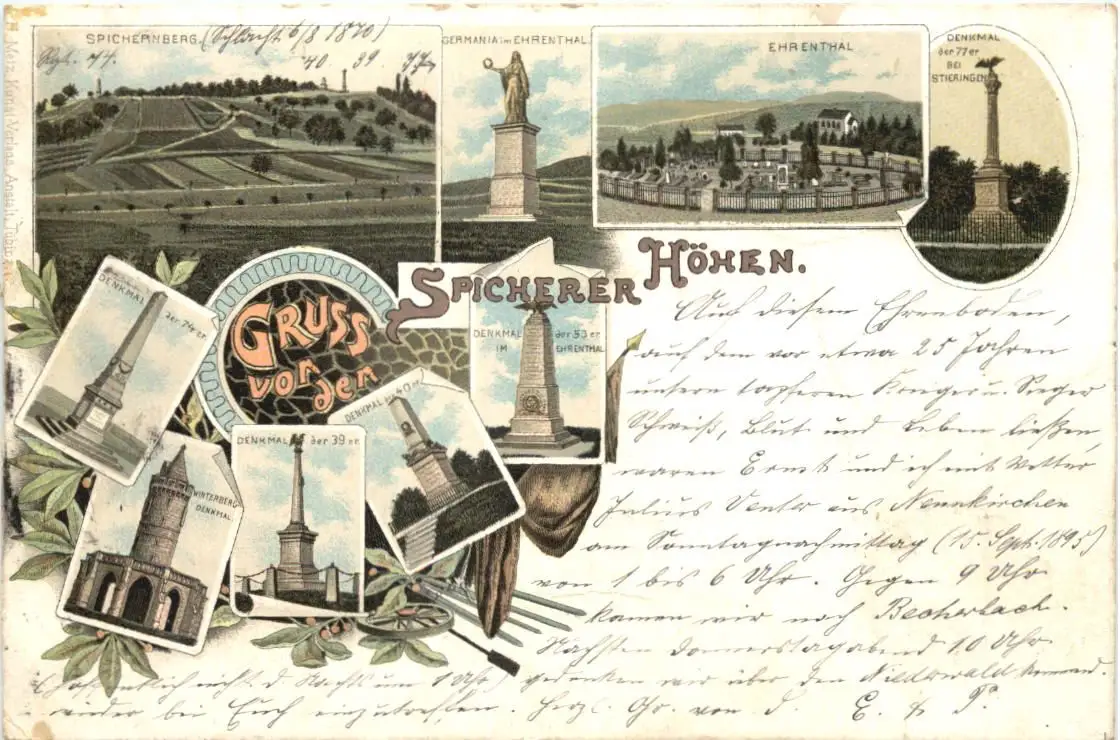 SPICHERNBERG. (Schlacht 6/8 1870)
Rgt. 74. 40 39. 77er
GERMANIA im EHRENTHAL
EHRENTHAL
DENKMAL
der 77er
BEI
STIERINGEN
DENKMAL
der 74er.
GRUSS
von den
SPICHERER HÖHEN.
DENKMAL der 53er
IM EHRENTHAL
DENKMAL der 40er
DENKMAL der 39er.
WINTERBERG
DENKMAL.
Auf diesem Ehrenboden,
auf dem vor etwa 25 Jahren
unsere tapferen Krieger u. Sieger
Schweiß, Blut und Leben ließen,
waren Ernst und ich mit Vetter
Julius Venter aus Neunkirchen
am Sonntagnachmittag (15. Sept. 1895)
von 1 bis 6 Uhr. Gegen 9 Uhr
kamen wir nach Becherbach.
Nächsten Donnerstagabend 10 Uhr
(hoffentlich nicht d. Nachts um 1 Uhr) gedenken wir über den Niederwald kommend
wieder bei Euch einzutreffen. Herzl. Gr. von d. E. & P.